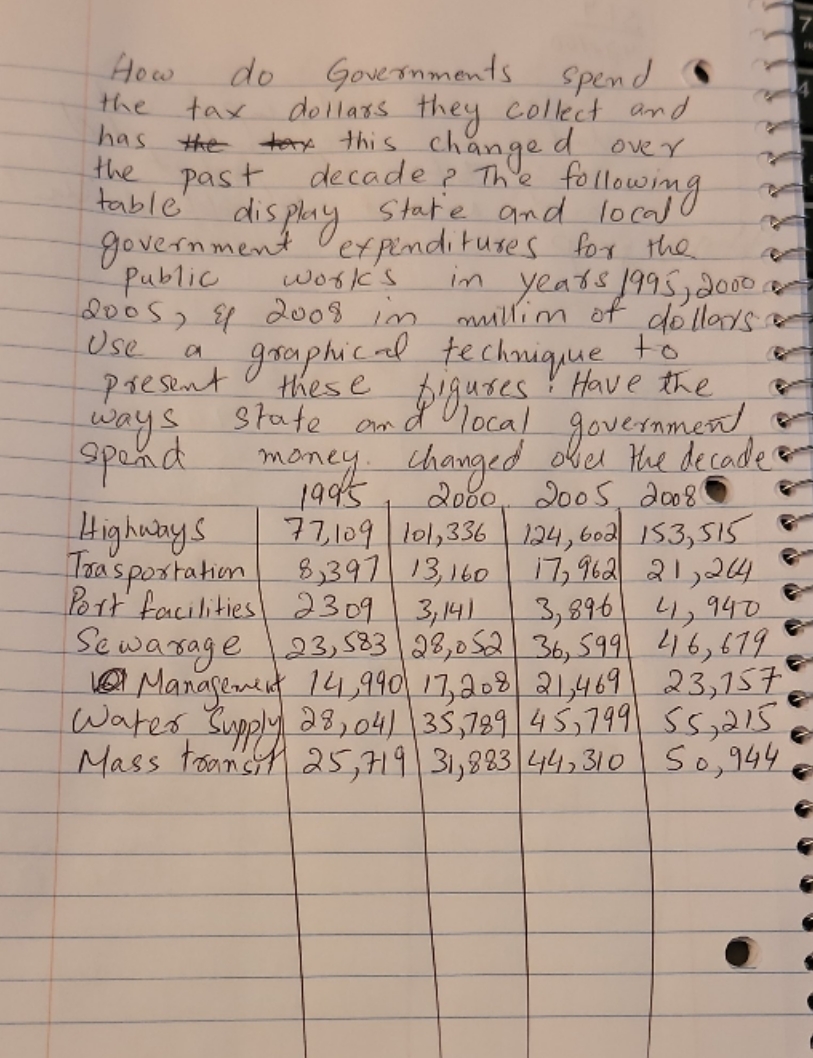 How do Governments spend
the tax dollars they collect and
has the tax this changed over
the past decade? The following
table display state and local
government expenditures for the
public works in years 1995, 2000
2005, & 2008 in millim of dollars
Use a graphical technique to
present these figures! Have the
ways state and local government
spend money. changed over the decade
1995 2000 2005 2008
Highways 77,109 101,336 124,602 153,515
Trasportation 8,397 13,160 17,962 21,264
Port facilities 2309 3,141 3,896 4,940
Sewarage 23,583 28,052 36,599 46,679
Management 14,990 17,208 21,469 23,757
Water Supply 28,041 35,789 45,799 55,215
Mass transit 25,719 31,883 44,310 50,944